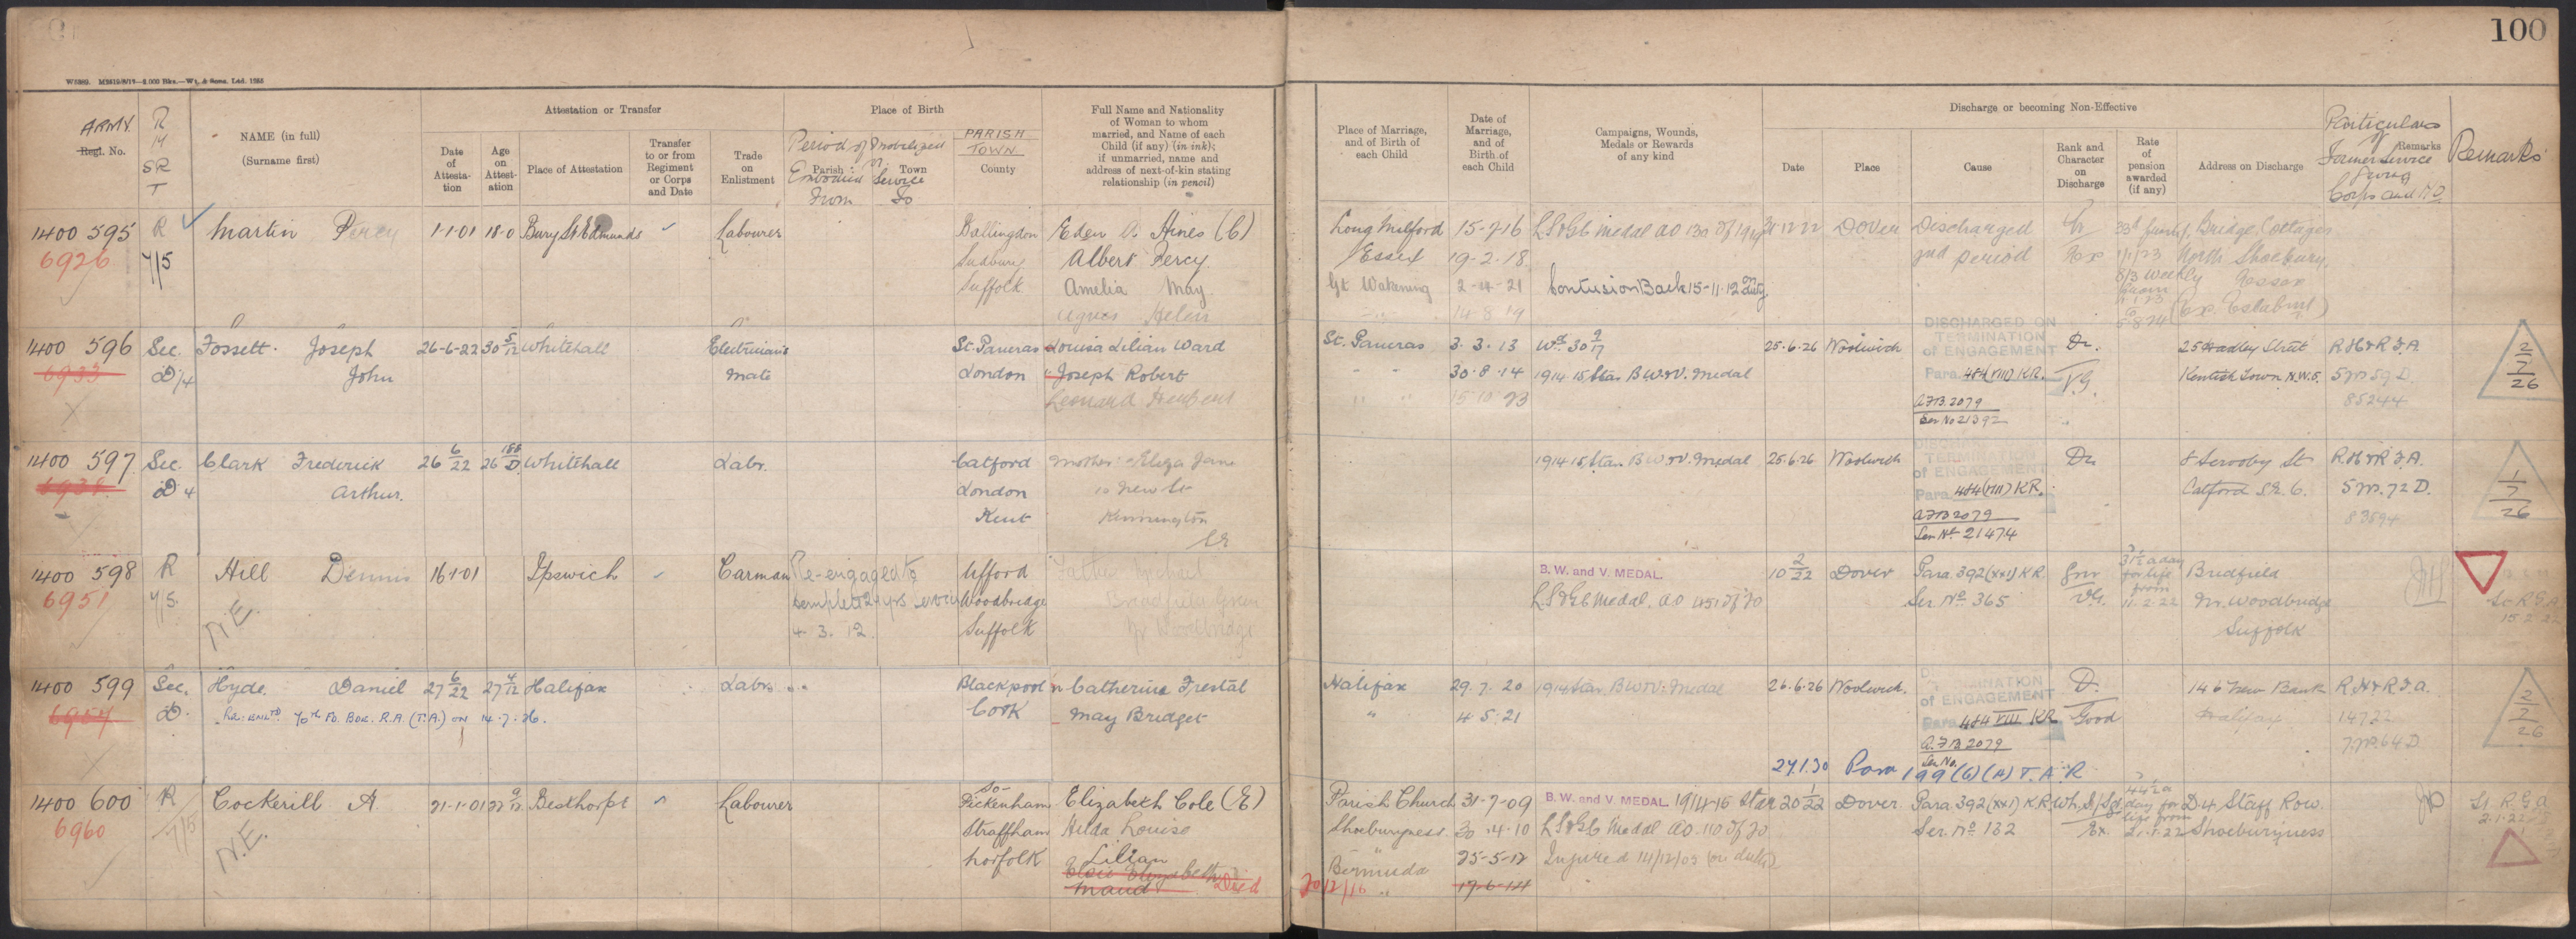 100
W5989. M2812/8/19—2,000 Bks.—Wy. & Sons, Ltd. 1585
ARMY
Regl. No.
R
14
SR
T
NAME (in full)
(Surname first)
Attestation or Transfer
Date of Attesta-tion
Age on Attest-ation
Place of Attestation
Transfer to or from Regiment or Corps and Date
Trade on Enlistment
Place of Birth
Parish
Town
Period of Mobilized or
Embodied Service
From To
PARISH
TOWN
County
Full Name and Nationality
of Woman to whom
married, and Name of each
Child (if any) (in ink);
if unmarried, name and
address of next-of-kin stating
relationship (in pencil)
Place of Marriage,
and of Birth of
each Child
Date of
Marriage,
and of
Birth of
each Child
Campaigns, Wounds,
Medals or Rewards
of any kind
Discharge or becoming Non-Effective
Date
Place
Cause
Rank and Character on Discharge
Rate of pension awarded (if any)
Address on Discharge
Remarks
Particulars
of
Former Service
giving
Corps and No
Remarks
1400 595 R Martin Percy 1-1-01 18-0 Bury St Edmunds Labourer Ballingdon Eden A. Hines (C) Long Milford 15-7-16 L.S&G.C Medal AO 130 of 1919 31 12 22 Dover Discharged Bridge Cottages
6926 Sudbury Albert Percy Essex 19-2-18 2nd period Ex North Shoebury
Suffolk Amelia May Gt Wakering 2-4-21 Contusion Back 15-11-12 on duty 8/3 weekly Essex
Agnes Helen 14 8 19 from (Ex. Establmt)
1400 596 Sec. Fossett. Joseph 26-6-22 30 5/12 Whitehall Electrician's St. Pancras Louisa Lilian Ward St. Pancras 3. 3. 13 Wd 30 9/17 25.6.26 Woolwich DISCHARGED ON TERMINATION of ENGAGEMENT Dr. 25 Hadley Street R.H&R.F.A. 2/7/26
6933 D/4 John Mate London Joseph Robert 30.8.14 1914 15 Star B W & V. Medal Para. 484 (VIII) K.R. V.G. Kentish Town N.W.5. 5M59D
Leonard 15 10 23 A.F.B. 2079 85244
Ser No 21392
1400 597 Sec. Clark Frederick 26 6/22 26 Whitehall Labr. Catford Mother Eliza Jane 1914 15 Star B W & V. Medal 25.6.26 Woolwich of ENGAGEMENT Dr 8 Scrooby St R.H&R.F.A. 1/7/26
D 4 Arthur. London 10 New St Para. 484 (VIII) K.R. Catford S.E. 6. 5M.72D.
Kent Kennington A.F.B 2079 83594
SE Ser No 21474
1400 598 R Hill Dennis 16-1-01 Ipswich Carman Re-engaged to Ufford Father Michael B. W. and V. MEDAL 10 2/22 Dover Para. 392 (xxi) K.R. Gnr 31½ a day Bredfield
6951 N.E. complete 21 yrs Woodbridge Bredfield Green L.S&G.C Medal. AO 451 of 20 Ser. No 365 V.G. for life from Nr. Woodbridge
4. 3. 12. Suffolk Nr Woodbridge 11.2.22 Suffolk
1400 599 Sec. Hyde. Daniel 27 6/22 27 4/12 Halifax Labr. Blackpool Catherine Frestal Halifax 29.7.20 1914 Star B W & V. Medal 26.6.26 Woolwich. of ENGAGEMENT D. 146 New Bank R.H&R.F.A. 2/7/26
6957 D. Re-enltd 70th Fd. Bde. R.A. (T.A.) on 14.7.26. Cork May Bridget " 4 5.21 Para. 484 VIII KR Good Halifax 14722
A.F.B 2079 7.M.64D.
Ser. No.
27.1.30 Para 199 (6) (A) T.A.R
1400 600 R Cockerill A. 21-1-01 22 9/12 Besthorpe Labourer So- Pickenham Elizabeth Cole (E) Parish Church 31-7-09 B. W. and V. MEDAL 1914-15 Star 20 1/22 Dover Para. 392 (xxi) K.R. 44½ a day for D.4 Staff Row.
6960 N.E. Straffham Hilda Louise Shoeburyness. 30.4.10 L.S&G.C Medal AO. 110 of 20 Ser. No 132 Ex. life from 21.1.22 Shoeburyness
Norfolk Lilian " 25-5-12 Injured 14/12/09 (on duty)
Elsie Elizabeth Bermuda
Maud Died 20/2/16 " 17-6-14